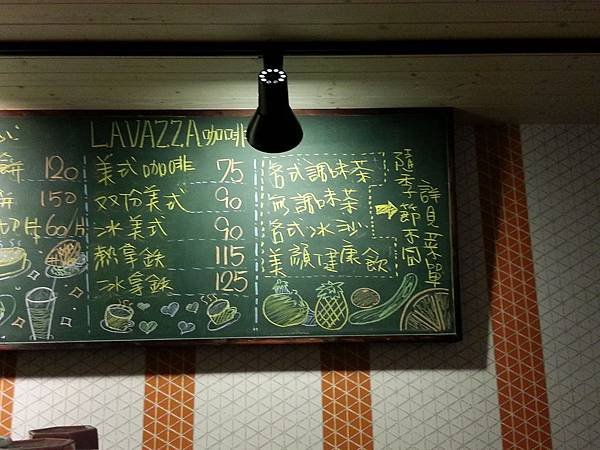 餅 120
餅 150
切片 60/片
LAVAZZA 咖啡
美式咖啡 75
双份美式 90
冰美式 90
熱拿鉄 115
冰拿鉄 125
各式調味茶
無調味茶
各式冰沙
美顏健康飲
隨季節不同
詳見菜單